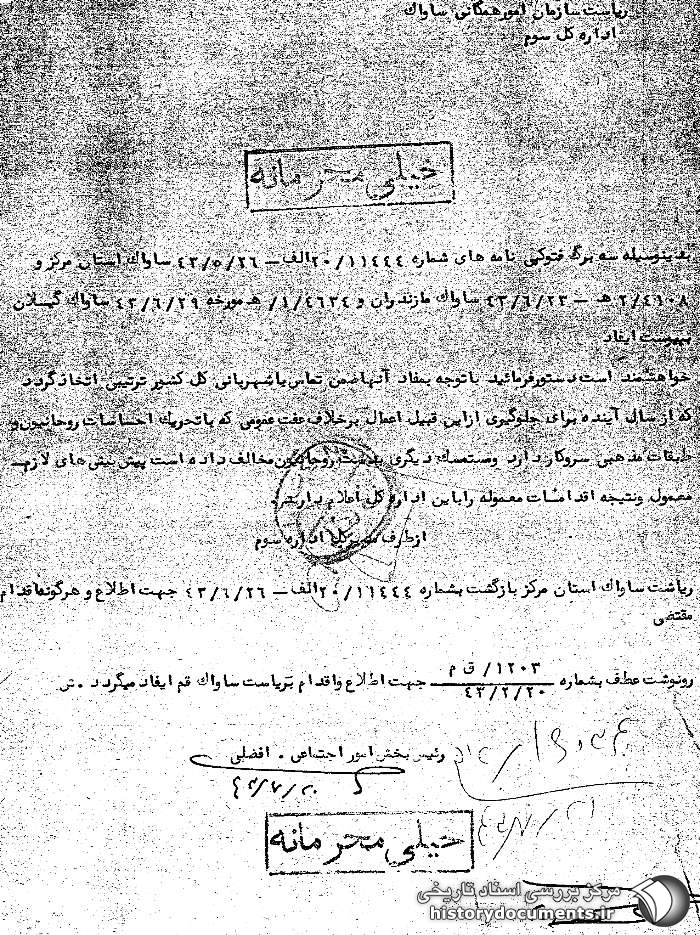 ریاست سازمان امور همگانی ساواک
اداره کل سوم
خیلی محرمانه
بدینوسیله سه برگ فتوکپی نامه های شماره ۲۰/۱۱۴۴۴الف – ۴۳/۵/۲۶ ساواک استان مرکز و
۲/۴۶۰۸ هـ – ۴۳/۶/۲۳ ساواک مازندران و ۱/۴۶۳۴/ هـ مورخه ۴۳/۶/۲۹ ساواک گیلان
بپیوست ایفاد
خواهشمند است دستور فرمائید با توجه بمفاد آنها ضمن تماس با شهربانی کل کشور ترتیبی اتخاذ گردد
که از سال آینده برای جلوگیری از این قبیل اعمال برخلاف عفت عمومی که با تحریک احساسات روحانیون و
طبقات مذهبی سروکار دارد و مستمسک دیگری بدست روحانیون مخالف داده است پیش بینی های لازمه
معمول و نتیجه اقدامات معموله را باین اداره کل اعلام دارند.
از طرف مدیر کل اداره سوم
ریاست ساواک استان مرکز بازگشت بشماره ۲۰/۱۱۴۴۴الف – ۴۳/۶/۲۶ جهت اطلاع و هرگونه اقدام
مقتضی
رونوشت عطف بشماره ۱۲۰۳/ ق م ۴۳/۲/۲۰ جهت اطلاع و اقدام بریاست ساواک قم ایفاد میگردد . ش
رئیس بخش امور اجتماعی . افضلی
خیلی محرمانه
مرکز بررسی اسناد تاریخی
historydocuments.ir